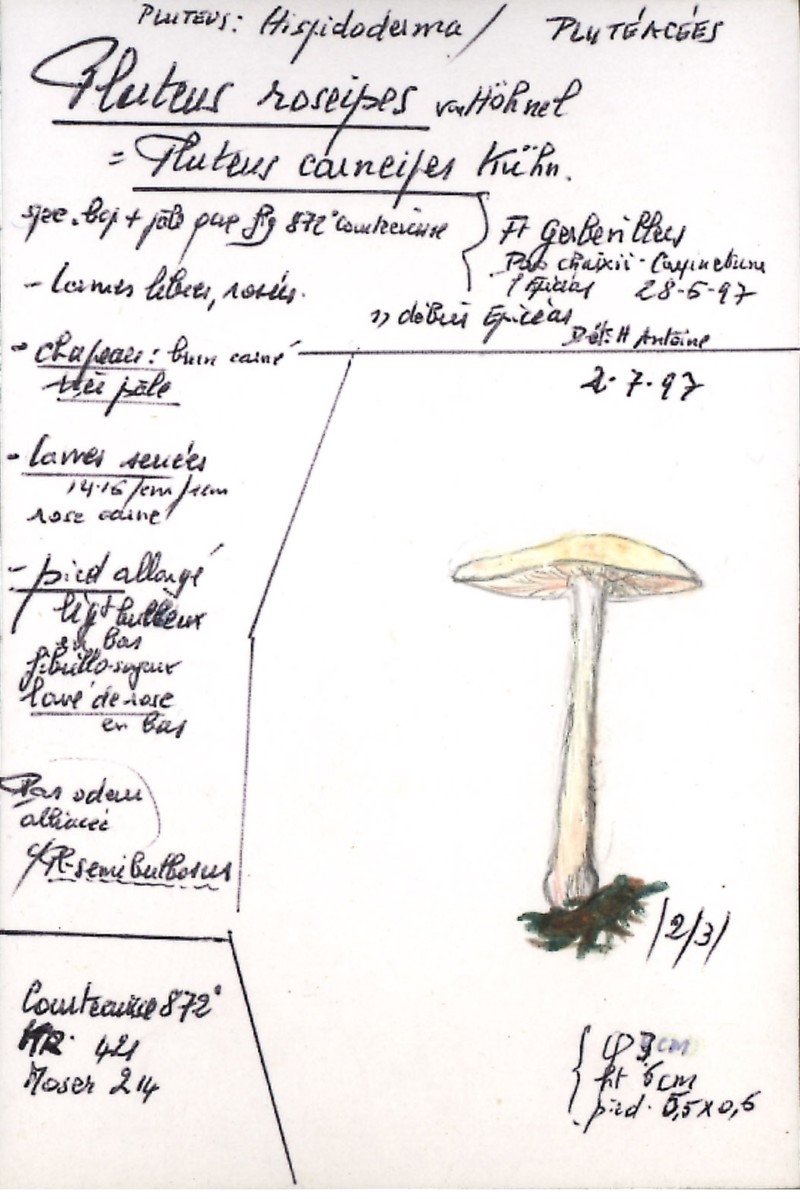 PLUTEUS: Hispidoderma / PLUTÉACÉES
Pluteus roseipes von Höhnel
= Pluteus carneipes Kühn.
spe. bcp + pâle que fig 872 Courtecuisse
Ft Gerbeviller
1 Epicéas 28-6-97
- Lames libres, rosés.
débris Epicéas
Dét: H Antoine
- chapeau: brun carné
très pâle
2-7-97
- Lames serrées
14-16/cm/1cm
rose carné
- pied allongé
légt bulbeux
en bas
fibrillo-soyeux
lavé de rose
en bas
Pas odeur
alliacée
c/Pl-semibulbosus
(2/3)
Courtecuisse 872
KR. 421
Moser 214
φ 3 cm
ht 6 cm
pied. 5,5 x 0,6